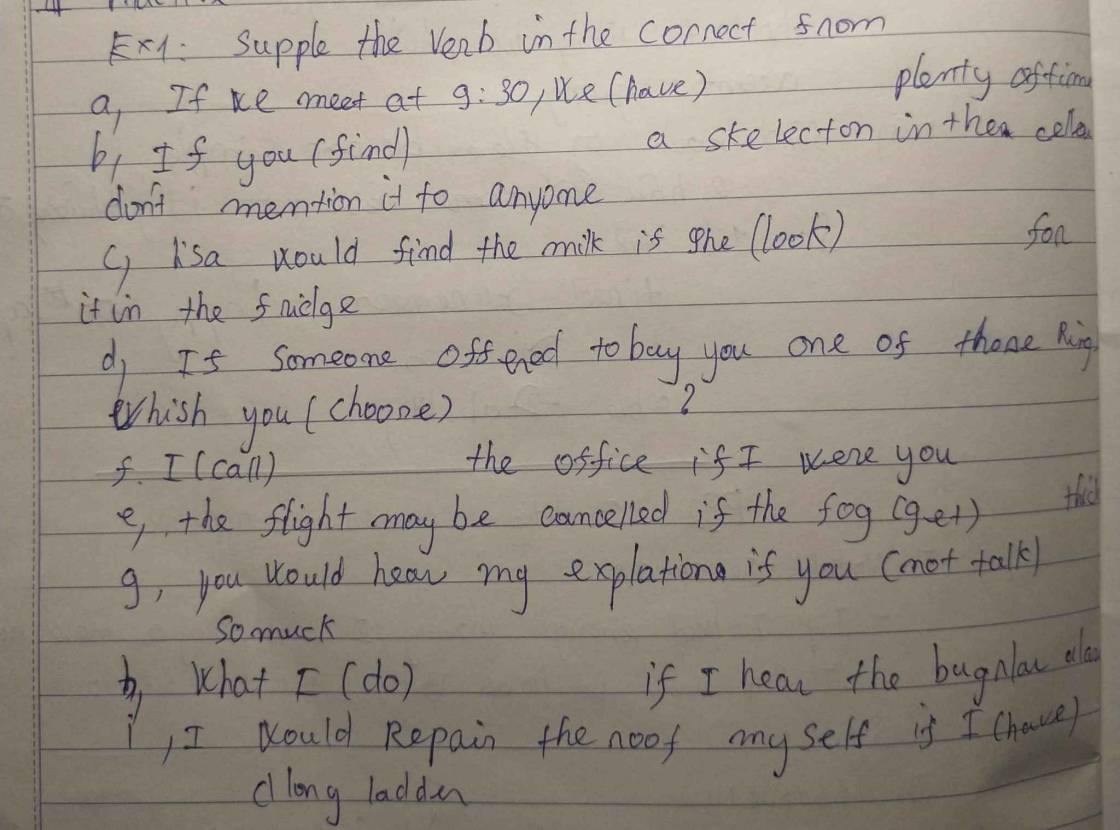 Ex1: Supple the Verb in the Correct from
a, If we meet at 9:30, We (have) plenty offtime
b, If you (find) a skelecton in thea cella
don't mention it to anyone
c, lisa would find the milk if She (look) for
it in the fridge
d, If Someone offered to buy you one of those Ring
Whish you (choose) ?
f. I (call) the office if I were you
e, the flight may be cancelled if the fog (get) thick
g, you would hear my explations if you (not talk)
So muck
h, What I (do) if I hear the bugnlar
i, I would Repair the roof my self if I (have)
a long ladder